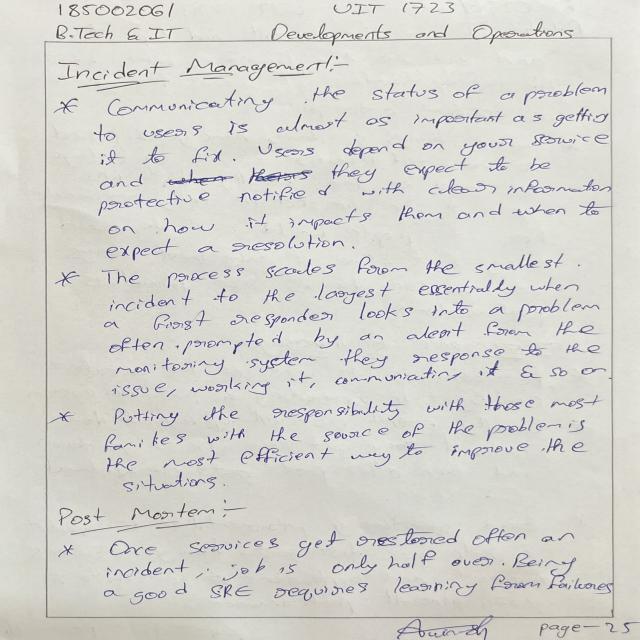 185002061 UIT 1723
B.Tech & IT Developments and Operations
Incident Management:-
* Communicating the status of a problem
to users is almost as important as getting
it to fix. Users depend on your service
and they expect to be
protective notified with clear information
on how it impacts them and when to
expect a resolution.
* The process scales from the smallest
incident to the largest essentially when
a first responder looks into a problem
often prompted by an alert from the
monitoring system they response to the
issue, working it, communicating it & so on
* Putting the responsibility with those most
familes with the source of the problem is
the most efficient way to improve the
situations.
Post Mortem:-
* One services get restored often an
incident, job is only half over. Being
a good SRE requires learning from failures
page-25